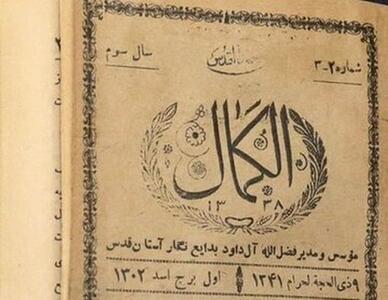 شماره ۲-۳
آستان قدس
سال سوم
الکمال
۱۳۳۸
مؤسس و مدیر فضل الله آل داود بدایع نگار آستان قدس
۹ ذی الحجة الحرام ۱۳۴۱
اول برج اسد ۱۳۰۲